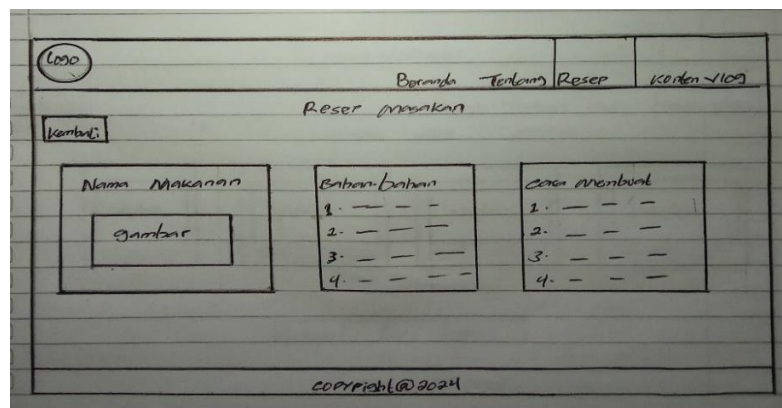 Logo
Beranda Tentang Resep Konten Vlog
Resep masakan
Kembali
Nama Makanan
gambar
Bahan-bahan
1.
2.
3.
4.
Cara membuat
1.
2.
3.
4.
copyright@2024